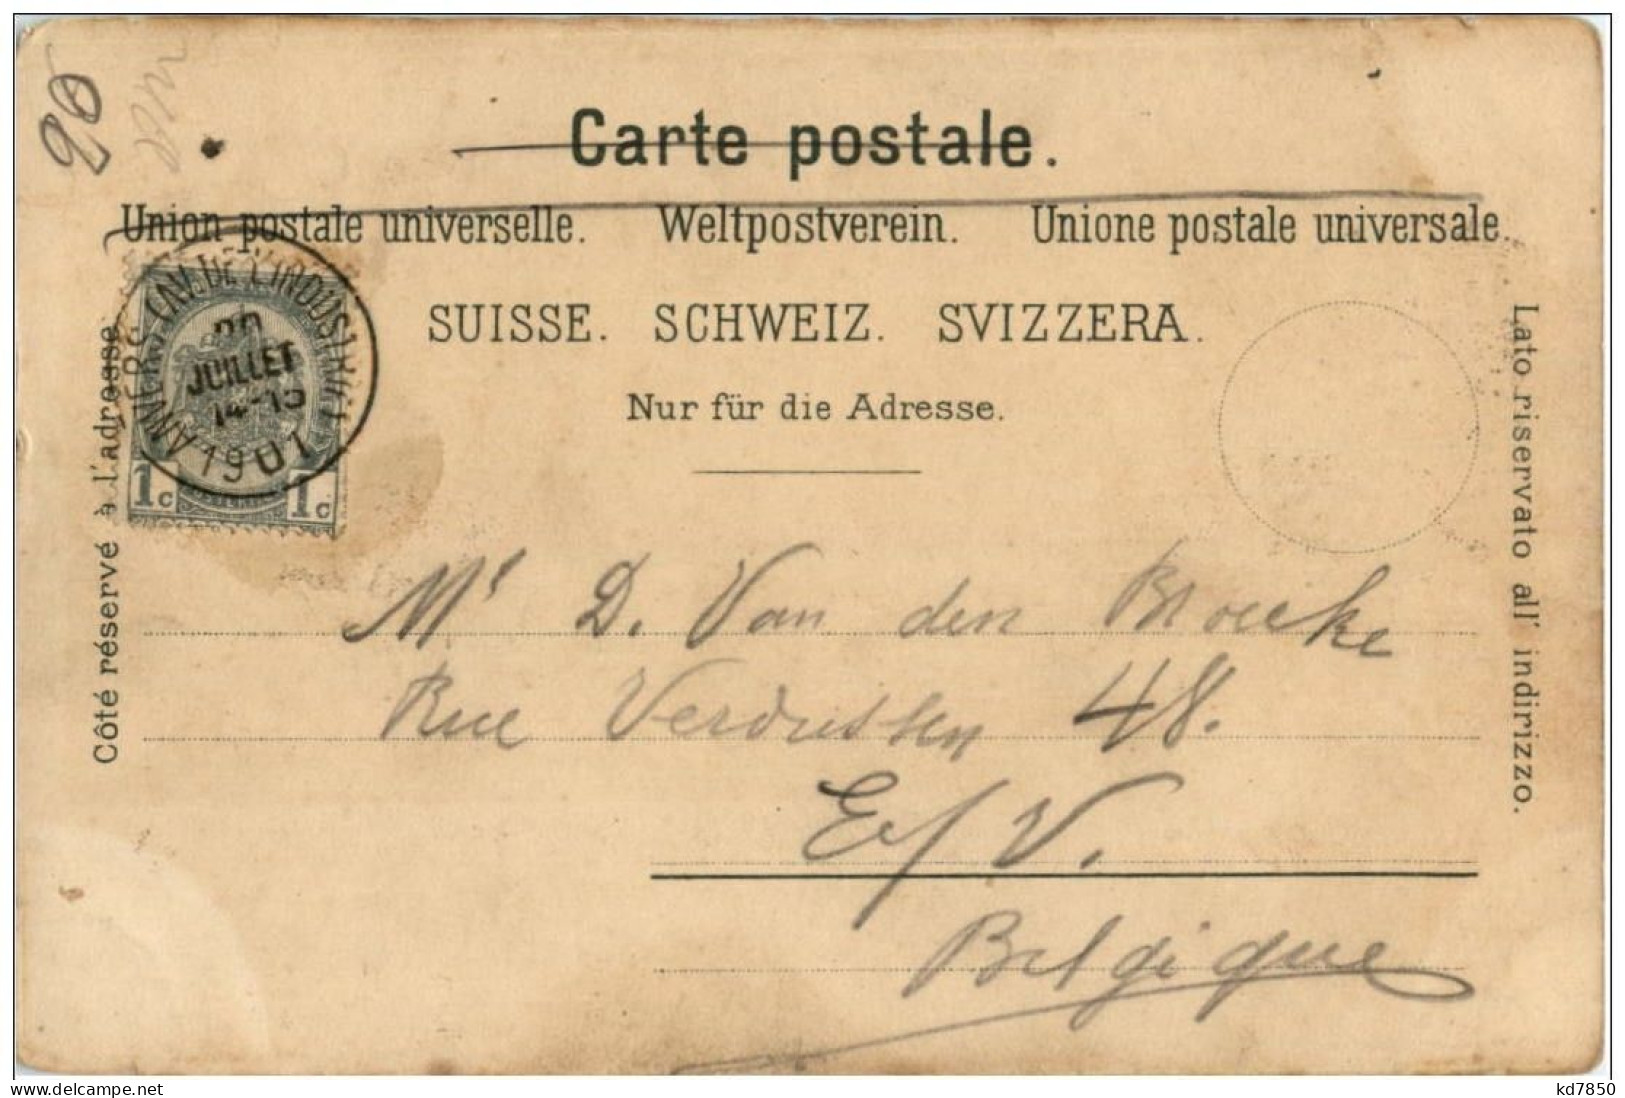 20
Carte postale.
Union postale universelle. Weltpostverein. Unione postale universale.
SUISSE. SCHWEIZ. SVIZZERA.
Nur für die Adresse.
Côté réservé à l'adresse.
Lato riservato all' indirizzo.
ANVERS (AV. DE L'INDUSTRIE)
20
JUILLET
14-15
1901
1c 1c
Mr D. Van den Broecke
Rue Verdussen 48.
E/V.
Belgique
delcampe.net
kd7850